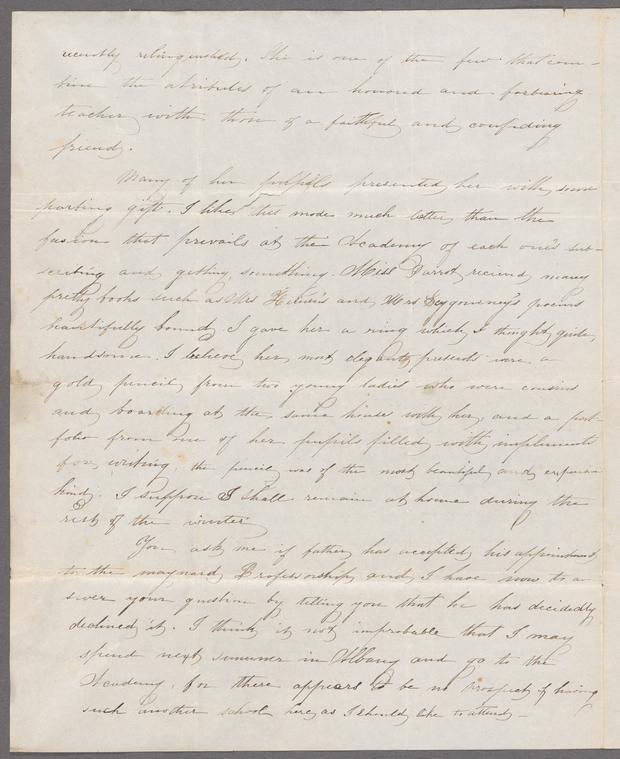 recently relinquished. She is one of the few that com-
bine the atributes of an honored and forbearing
teacher, with those of a faithful and confiding
friend.
Many of her pulpils presented her with some
parting gift. I like this mode much better, than the
fasion that prevails at the Academy of each one's sub-
scribing and getting something. Miss Parrot, recieved many
pretty books such as Mrs and Mrs Sygourney's poems
beautifully bound, I gave her a ring which I thought quite
handsome. I believe her most elegant presents were a
gold pencil, from two young ladies who were cousins
and boarding at the same house with her, and a port-
folio from one of her pupils filled with implements
for writing, the pencil was of the most beautiful and expensive
kind. I suppose I shall remain at home during the
rest of the winter.
You ask me if father has accepted his appointment
to the maynard Professorship and I have now to an-
swer your question by telling you that he has decidedly
declined it. I think it not improbable that I may
spend next summer in Albany and go to the
Academy, for there appears to be no prospect of having
such another school here, as I should like to attend-